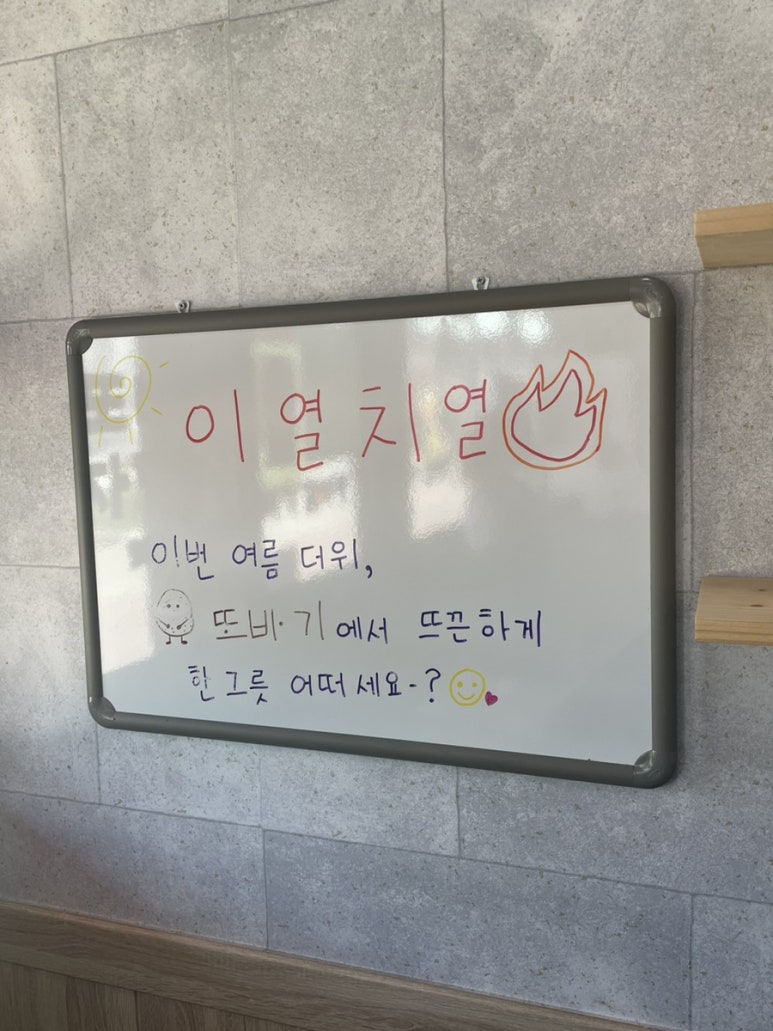 이열치열
이번 여름 더위,
또바·기에서 뜨끈하게
한그릇 어떠세요-?